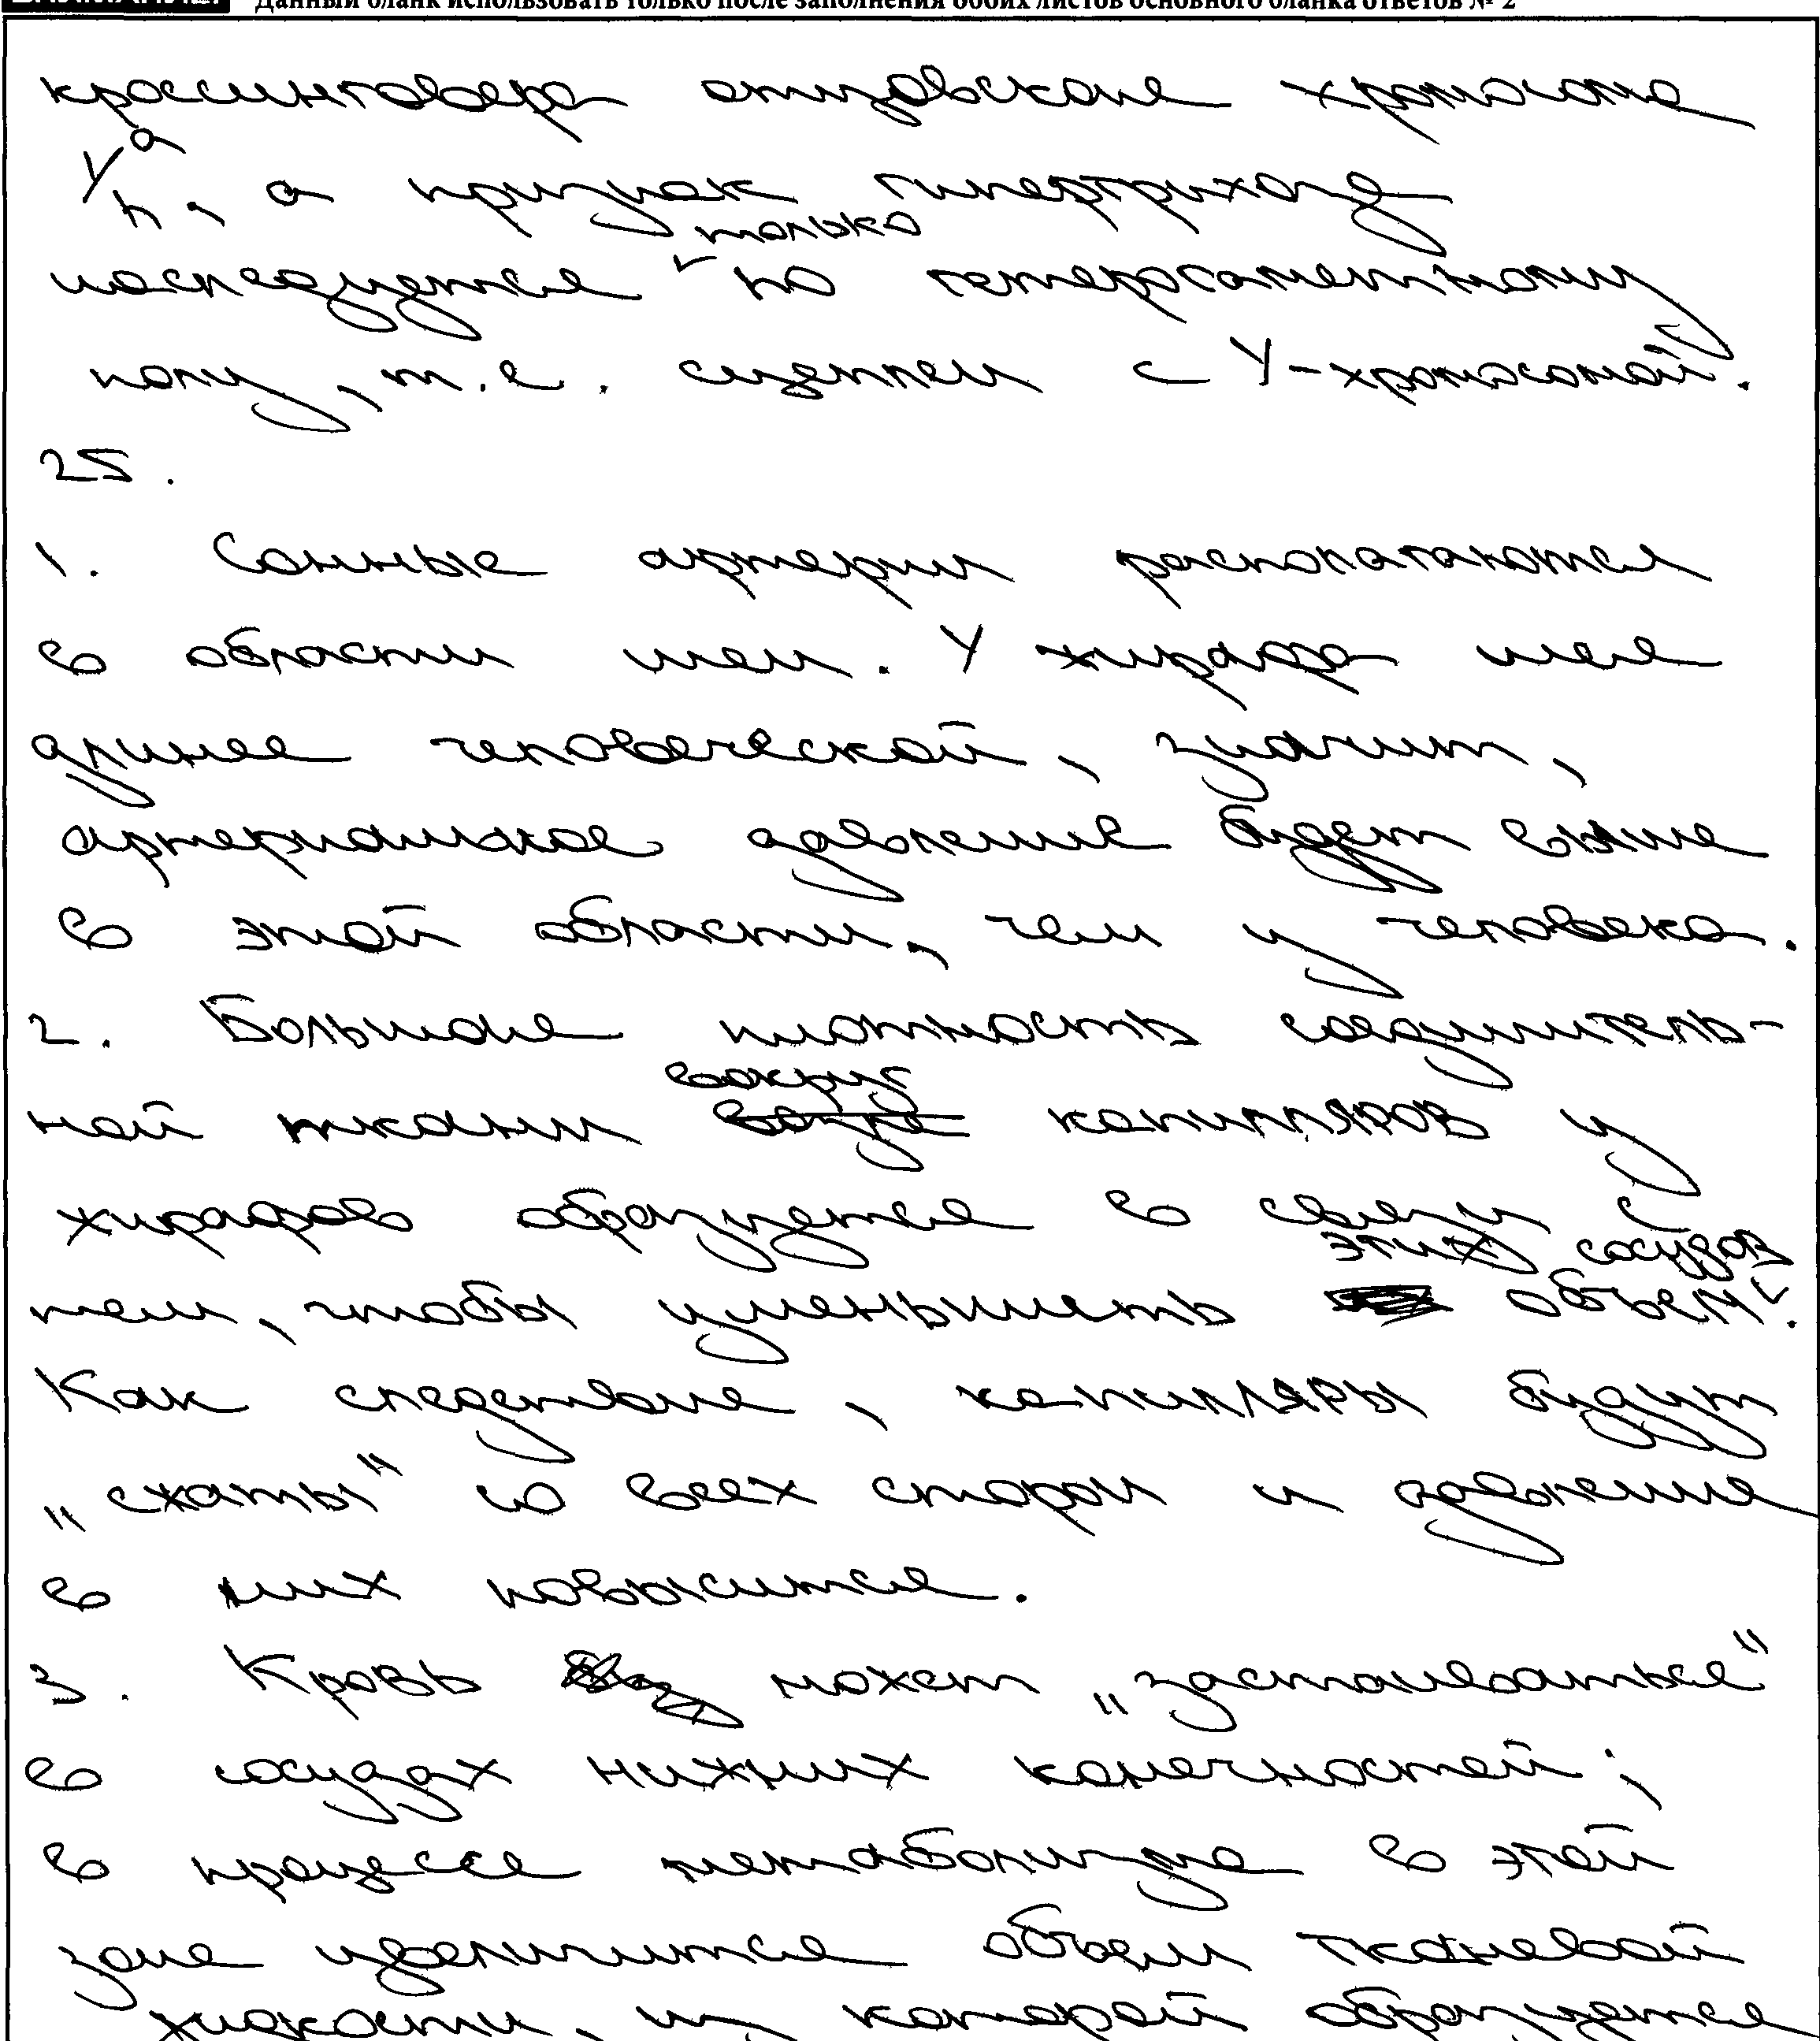 Данный бланк использовать только после заполнения обоих листов основного бланка ответов № 2
кроссинговера отцовская хромосома
Yᵃₕ, а признак гипертрихоз
наследуется только по гетерогаметному
полу, т.е. сцеплен с Y-хромосомой.
25.
1. Сонные артерии располагаются
в области шеи. У жирафа шея
длинее человеческой, значит,
артериальное давление будет выше
в этой области, чем у человека.
2. Большая плотность соединитель-
ной ткани вокруг капилляров у
жирафов образуется в связи с
тем, чтобы уменьшить объём этих сосудов.
Как следствие, капилляры будут
„сжаты" со всех сторон и давление
в них повысится.
3. Кровь может „застаиваться"
в сосудах нижних конечностей;
в процессе метаболизма в этой
зоне увеличится объем тканевой
жидкости, из которой образуется